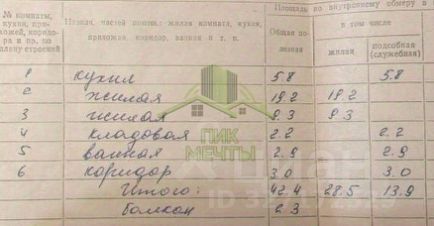 № комнаты,
кухни, при-
хожей, коридо-
ра и пр. по
плану строений
Назнач. частей помещ.: жилая комната, кухня,
прихожая, коридор, ванная и т. п.
Площадь по внутреннему обмеру в
Общая по-
лезная
в том числе
жилая
подсобная
(служебная)
1 кухня 5.8 5.8
2 жилая 19.2 19.2
3 жилая 9.3 9.3
4 кладовая 2.2 2.2
5 ванная 2.9 2.9
6 коридор 3.0 3.0
Итого: 42.4 28.5 13.9
балкон 2.3
ПИК
МЕЧТЫ